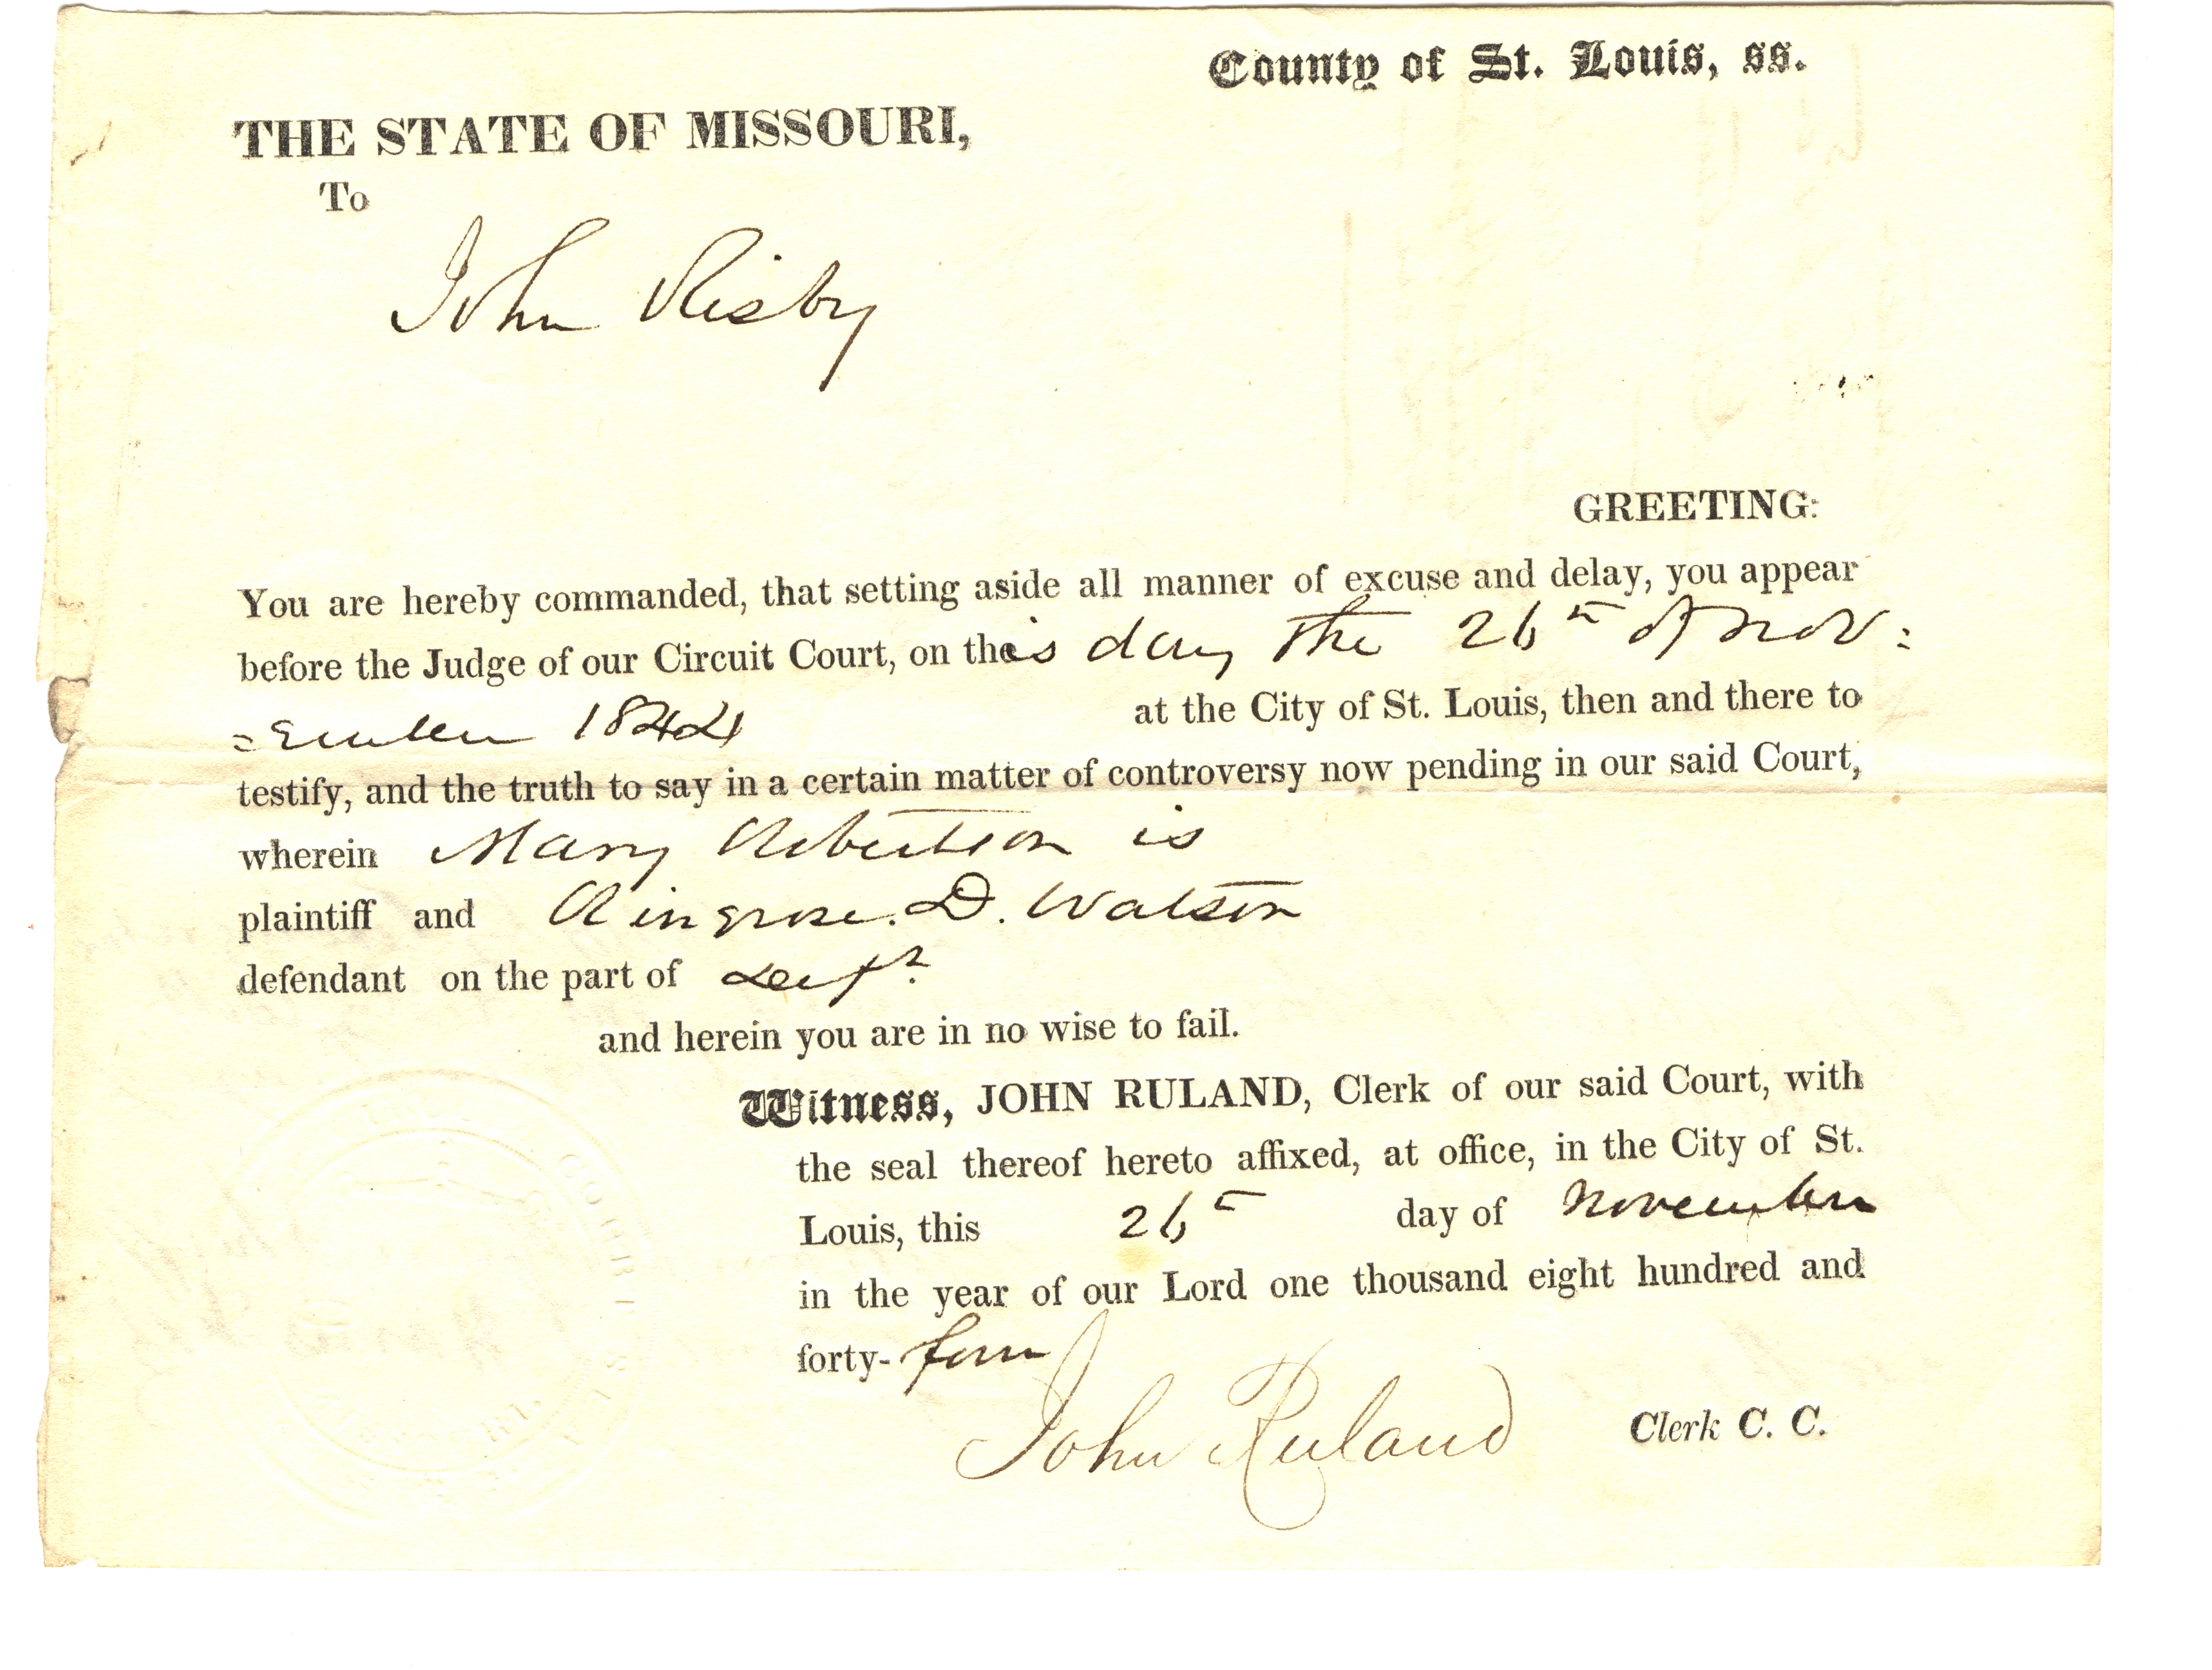 County of St. Louis, ss.
THE STATE OF MISSOURI,
To
John Risby
GREETING:
You are hereby commanded, that setting aside all manner of excuse and delay, you appear
before the Judge of our Circuit Court, on this day the 26th of Nov:
=ember 1844 at the City of St. Louis, then and there to
testify, and the truth to say in a certain matter of controversy now pending in our said Court,
wherein Mary Robertson is
plaintiff and Ringrose. D. Watson
defendant on the part of Deft
and herein you are in no wise to fail.
Witness, JOHN RULAND, Clerk of our said Court, with
the seal thereof hereto affixed, at office, in the City of St.
Louis, this 26th day of November
in the year of our Lord one thousand eight hundred and
forty-four
John Ruland Clerk C. C.
COURT ST